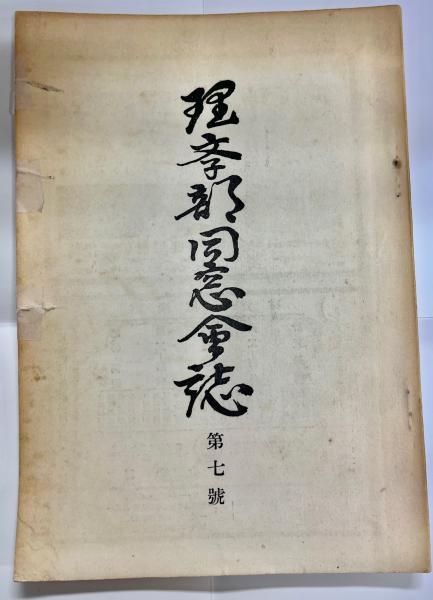 理学部同窓會誌
第七號